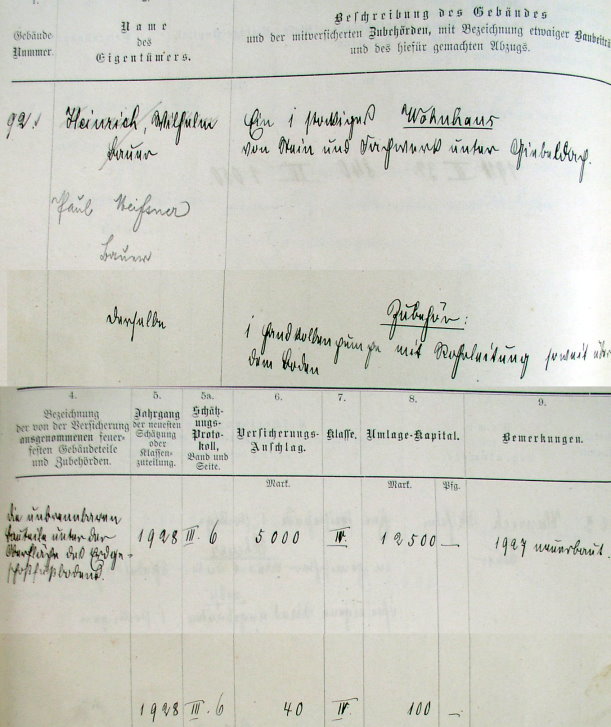 1.
Gebäude
Nummer.
Name
des
Eigentümers.
Beschreibung des Gebäudes
und der mitversicherten Zubehörden, mit Bezeichnung etwaiger
und des hiefür gemachten Abzugs.
92.
Heinrich, Wilhelm
Bauer
Paul Meißner
Bauer
Ein 1 stockiges Wohnhaus
von Stein und Fachwerk unter Giebeldach.
derselbe
Zubehör:
1 Handkolbenpumpe mit Rohrleitung soweit über
dem Boden
4.
Bezeichnung
der von der Versicherung
ausgenommenen feuer-
festen Gebäudeteile
und Zubehörden.
5.
Jahrgang
der neuesten
Schätzung
oder
Klassen-
zuteilung.
5a.
Schätz-
ungs-
Proto-
koll,
Band und
Seite.
6.
Versicherungs-
Anschlag.
Mark.
7.
Klasse.
8.
Umlage-Kapital.
Mark. Pfg.
9.
Bemerkungen.
die unbrennbaren
Bauteile unter der
Oberfläche des Erdge-
schoßfußbodens.
1928 III. 6 5000 IV. 12500 — 1927 neuerbaut.
1928 III. 6 40 IV. 100 —